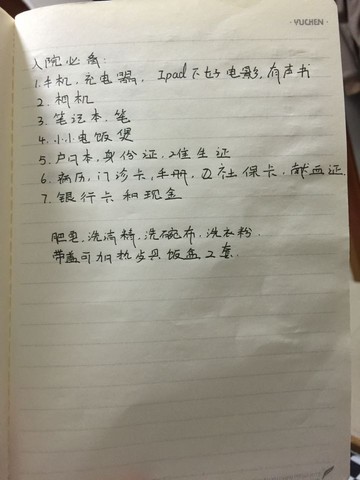 YUCHEN
入院必备:
1.手机,充电器, Ipad下好电影,有声书
2.相机
3.笔记本.笔
4.小小电饭煲
5.户口本.身份证,准生证
6.病历,门诊卡,手册,社保卡,献血证.
7.银行卡和现金
肥皂.洗洁精.洗碗布.洗衣粉.
带盖可加热 饭盒2套.